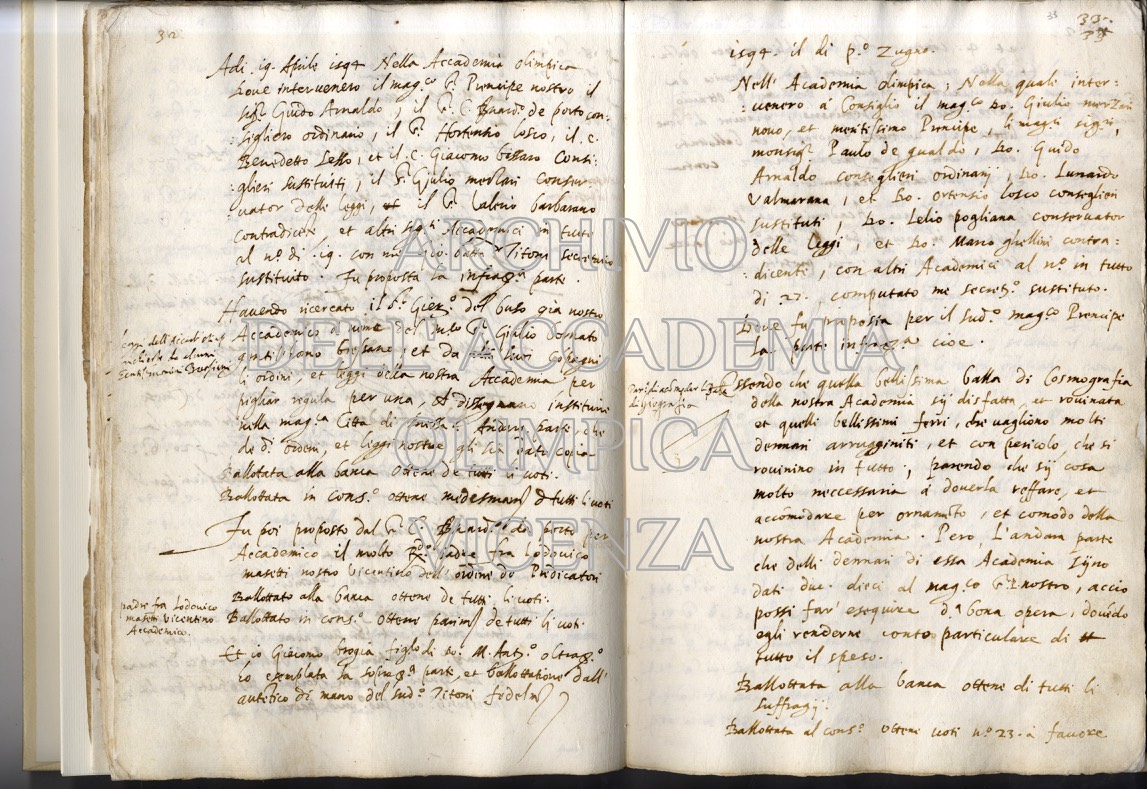 32
Adi. 19. Aprile 1594 Nella Accademia olimpica
Dove intervenero il mag.co S.r Prencipe nostro il
S.r Guido Arnaldo, il S.r C. Bnard.o de porto con-
sigliero ordinario, il S.r Hortensio losco, il c.
Benedetto Sesso, et il c. Giacomo bissaro Consi-
:glieri sustituiti, il S.r Giulio merzari conser-
:vator delle leggi, et il S.r Valerio barbarano
Contradicëte, et altri sig.ri Academici in tutti
al n.o di .19. con me Titoni secretario
sustituito. Fu proposta la infras.a parte.
Havendo ricercato il S.r Gier.o del buso già nostro
Accademico a nome del S.r Giulio
gentilhuomo bresano, et da altri
li ordini, et leggi della nostra Accademia per
pigliar regula per una, disegnano instituire
nella mag.ca Città di Bressa. Anderà parte che
de d.i ordeni, et leggi nostre gli sia dato copia
Ballotata alla banca ottene de tutti i voti.
Ballottata in cons.o ottene medesmam de tutti li voti
Fu poi proposto dal S.r C. Bnard.o da porto per
Accademico il molto R.do padre fra Lodovico
masetti nostro Vicentino dell'ordine de Predicatori
Ballottato alla banca ottene de tutti li voti.
Ballottato in cons.o ottene parim de tutti li voti.
padre fra Lodovico
masetti vicentino
Accademico.
Et io Giacomo brogia figlolo de s.r M. Ant.o
ho exemplata la sopras.a parte, et ballottatione dall'
autentico di mano del sud.o Titoni fidelm
33
33
1594. il di p.o Zugno.
Nell' Academia olimpica, Nella quale inter-
:venero à Consiglio il mag.co D.o Giulio merzari
novo, et meritissimo Prencipe, li magci sig.ri,
monsig.r Paulo de gualdo, D.o Guido
Arnaldo conseglieri ordinarij, D.o Lunardo
Valmarana, et D.o ortensio losco conseglieri
sustituti, D.o Lelio pogliana conservator
delle leggi, et D.o Mario ghellini contra-
:dicente, con altri Academici al n.o in tutto
di 27. computato me secret.o sustituto.
Dove fu proposta per il sud.o mag.co Prencipe
la parte infras.a cioe.
di geografia
Essendo che quella bellissima balla di Cosmografia
della nostra Academia sij disfatta, et rovinata
et quelli bellissimi ferri, che vagliono molti
dennari arrugginiti, et con pericolo che si
rovinino in tutto, parendo che sij cosa
molto neccessaria à doverla reffare, et
accomodare per ornamëto, et comodo della
nostra Academia. Però, L'andara parte
che delli dennari di essa Academia sijno
dati duc. dieci al mag.co S.r P. nostro, acciò
possi far' eseguire d.a bona opera, dovëdo
egli renderne conto particulare di
tutto il speso.
Ballottata alla banca ottene di tutti li
suffragij.
Ballottata al cons.o ottene voti n.o 23. à favore
ARCHIVIO
DELL'ACCADEMIA
OLIMPICA
VICENZA